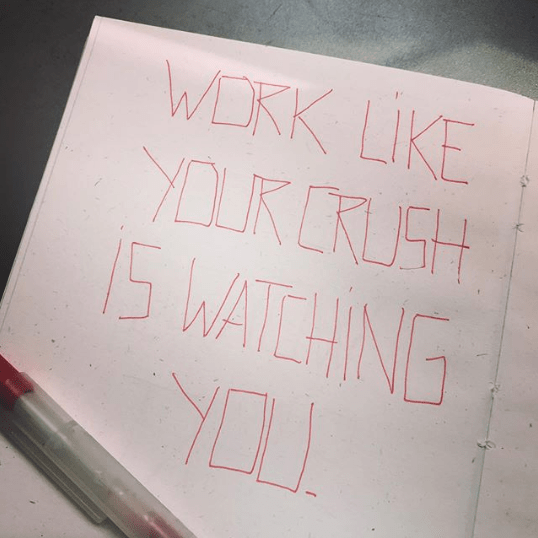 WORK LIKE
YOUR CRUSH
IS WATCHING
YOU.